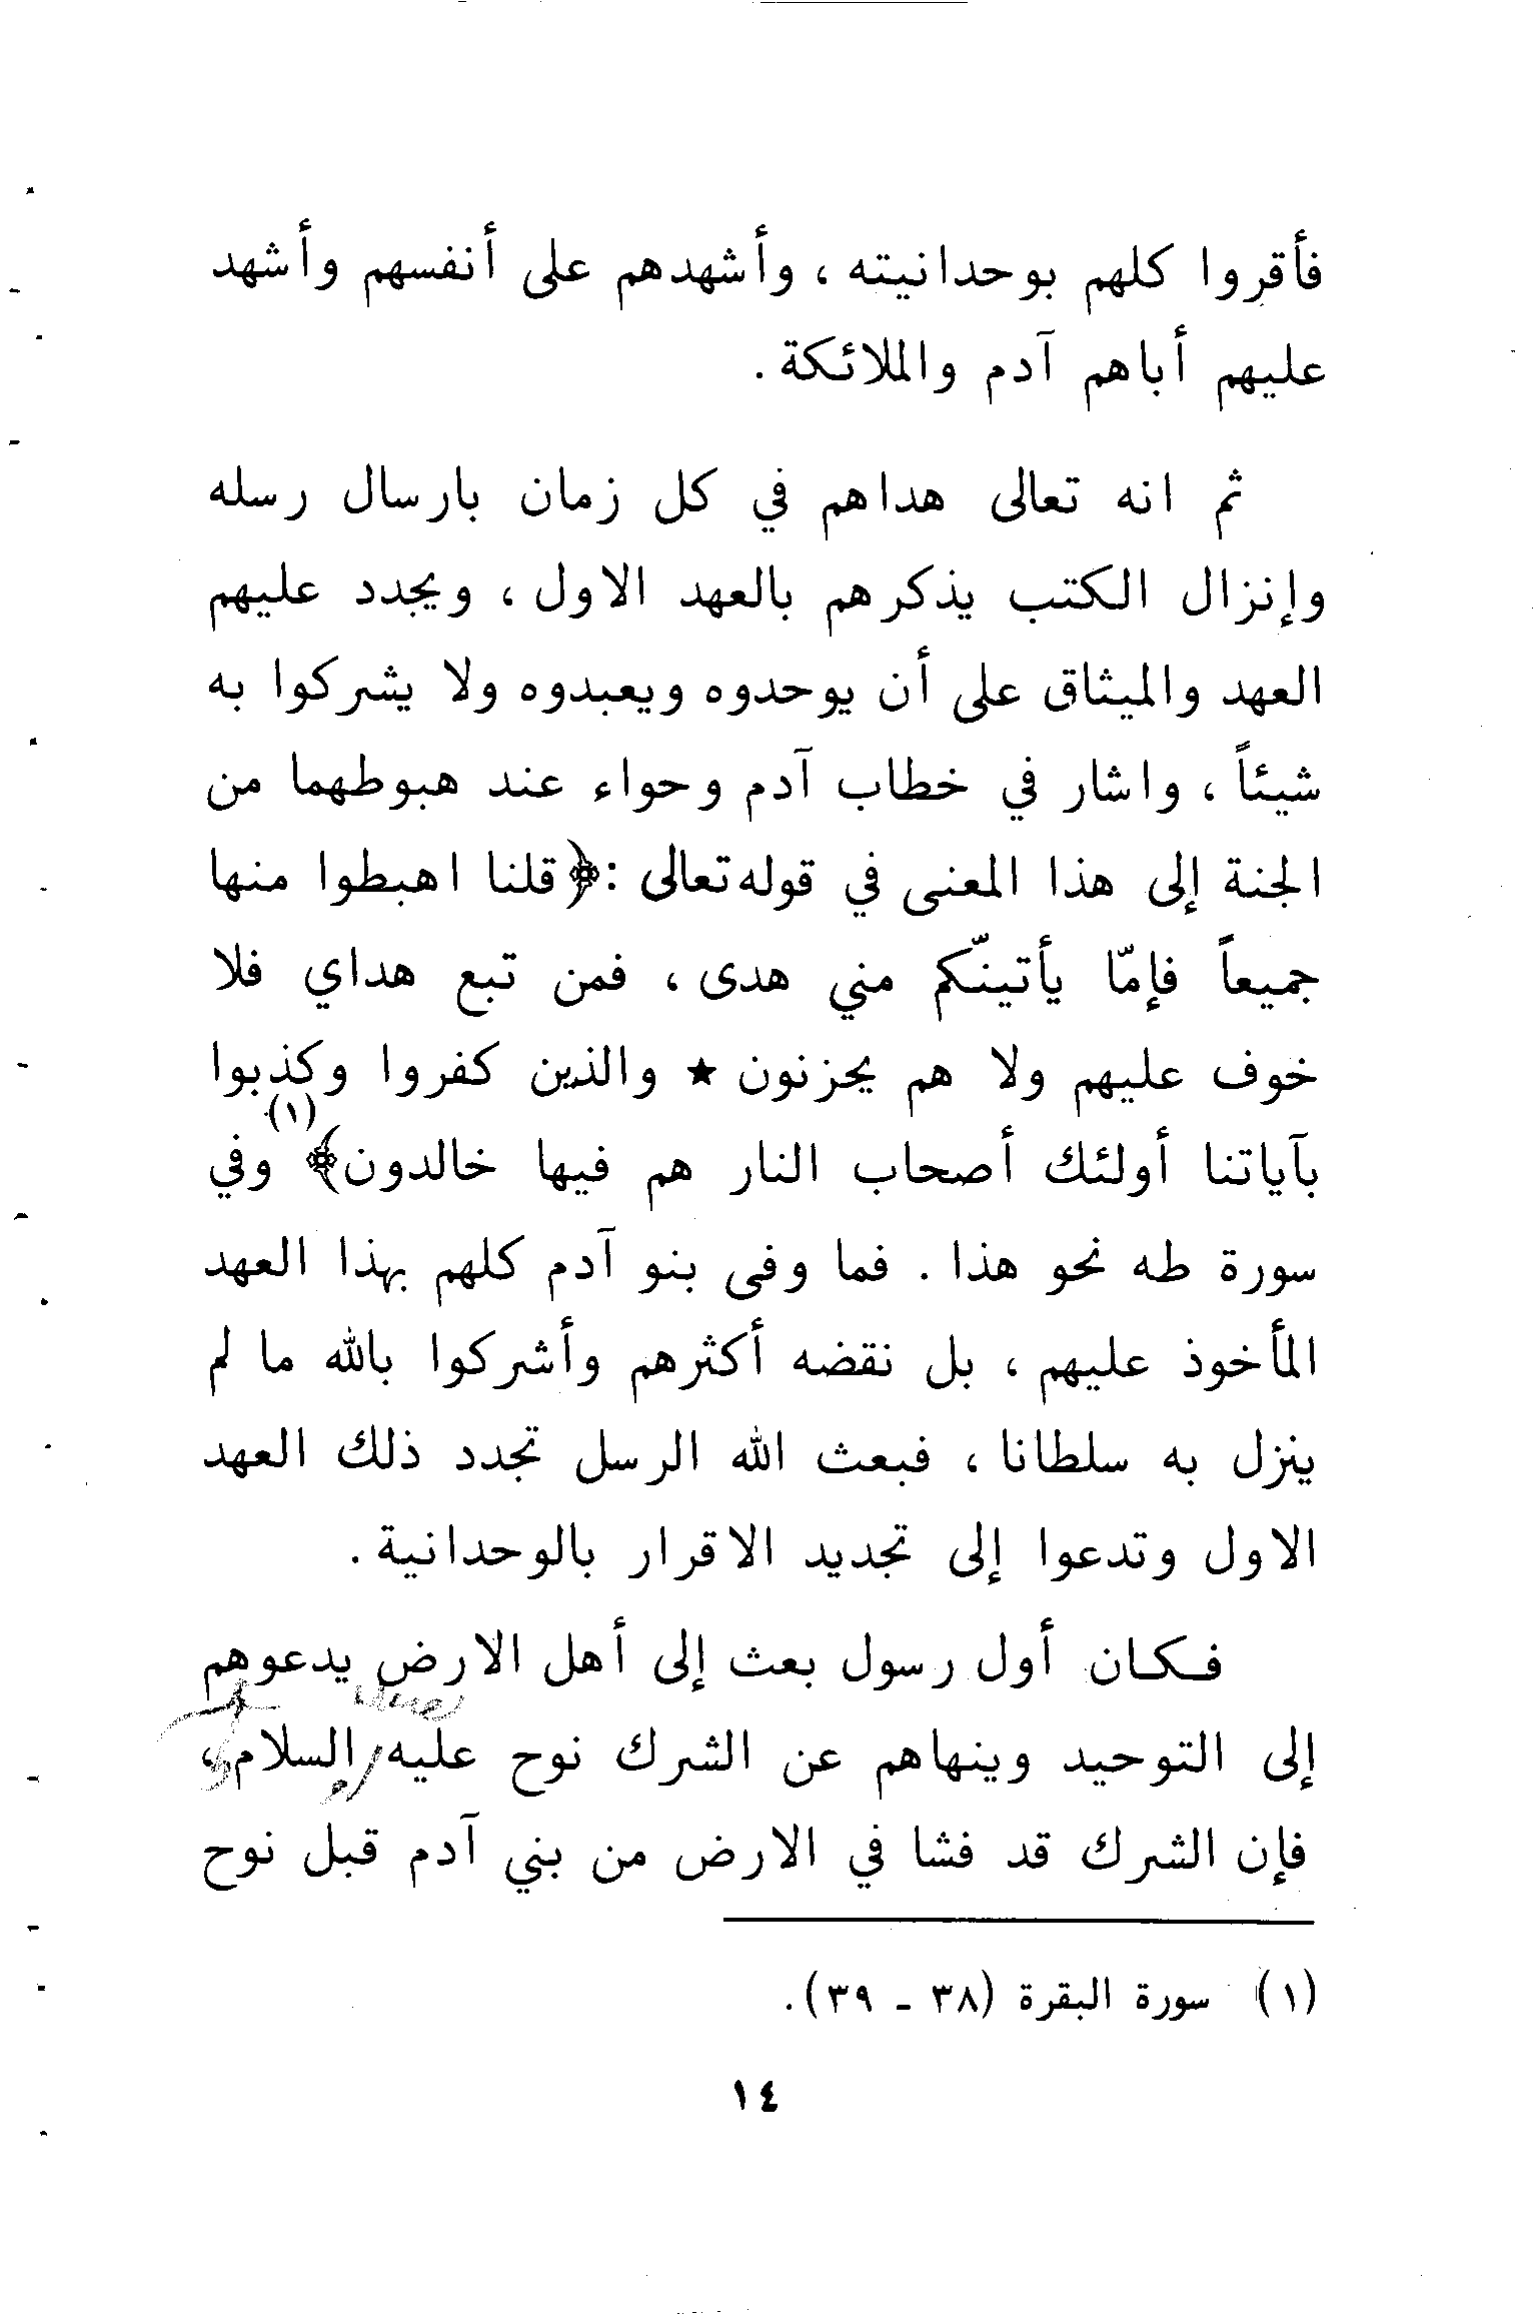 فأقروا كلهم بوحدانيته ، وأشهدهم على أنفسهم وأشهد
عليهم أباهم آدم والملائكة .
ثم انه تعالى هداهم في كل زمان بارسال رسله
وإنزال الكتب يذكرهم بالعهد الاول ، ويجدد عليهم
العهد والميثاق على أن يوحدوه ويعبدوه ولا يشركوا به
شيئاً ، واشار في خطاب آدم وحواء عند هبوطهما من
الجنة إلى هذا المعنى في قوله تعالى : ﴿قلنا اهبطوا منها
جميعاً فإمّا يأتينّكم مني هدى ، فمن تبع هداي فلا
خوف عليهم ولا هم يحزنون ★ والذين كفروا وكذبوا
بآياتنا أولئك أصحاب النار هم فيها خالدون﴾(١) وفي
سورة طه نحو هذا . فما وفى بنو آدم كلهم بهذا العهد
المأخوذ عليهم ، بل نقضه أكثرهم وأشركوا بالله ما لم
ينزل به سلطانا ، فبعث الله الرسل تجدد ذلك العهد
الاول وتدعوا إلى تجديد الاقرار بالوحدانية .
فكان أول رسول بعث إلى أهل الارض يدعوهم
إلى التوحيد وينهاهم عن الشرك نوح عليه السلام ،
فإن الشرك قد فشا في الارض من بني آدم قبل نوح
(١) سورة البقرة (٣٨ - ٣٩) .
١٤